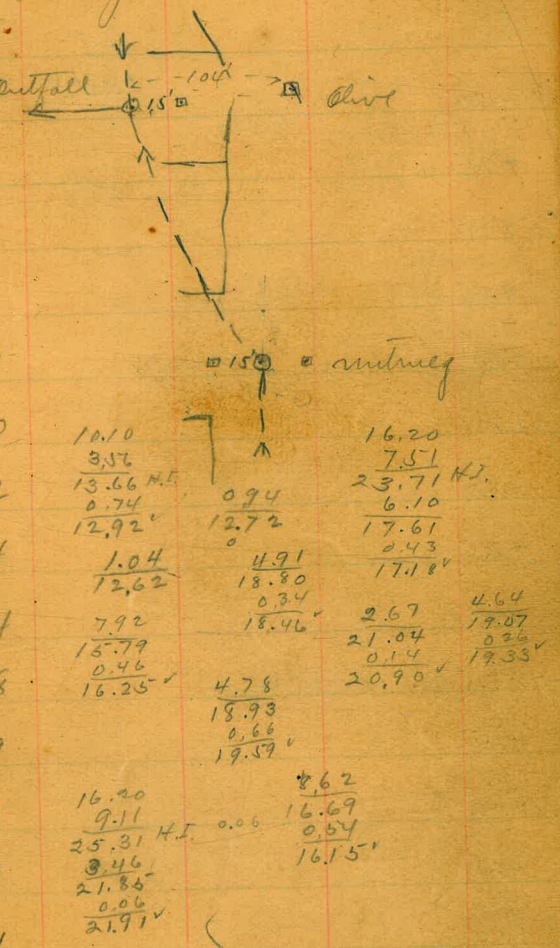 104'
outfall
15'
Olive
15'
nutmeg
10.10
3.56
13.66 H.I.
0.74
12.92 ✓
1.04
12.62
7.92
15.79
0.46
16.25 ✓
16.20
9.11
25.31 H.I. 0.06
3.46
21.85
0.06
21.91 ✓
0.94
12.72
0
4.91
18.80
0.34
18.46 ✓
4.78
18.93
0.66
19.59 ✓
8.62
16.69
0.54
16.15 ✓
16.20
7.51
23.71 H.I.
6.10
17.61
0.43
17.18 ✓
2.67
21.04
0.14
20.90 ✓
4.64
19.07
0.26
19.33 ✓